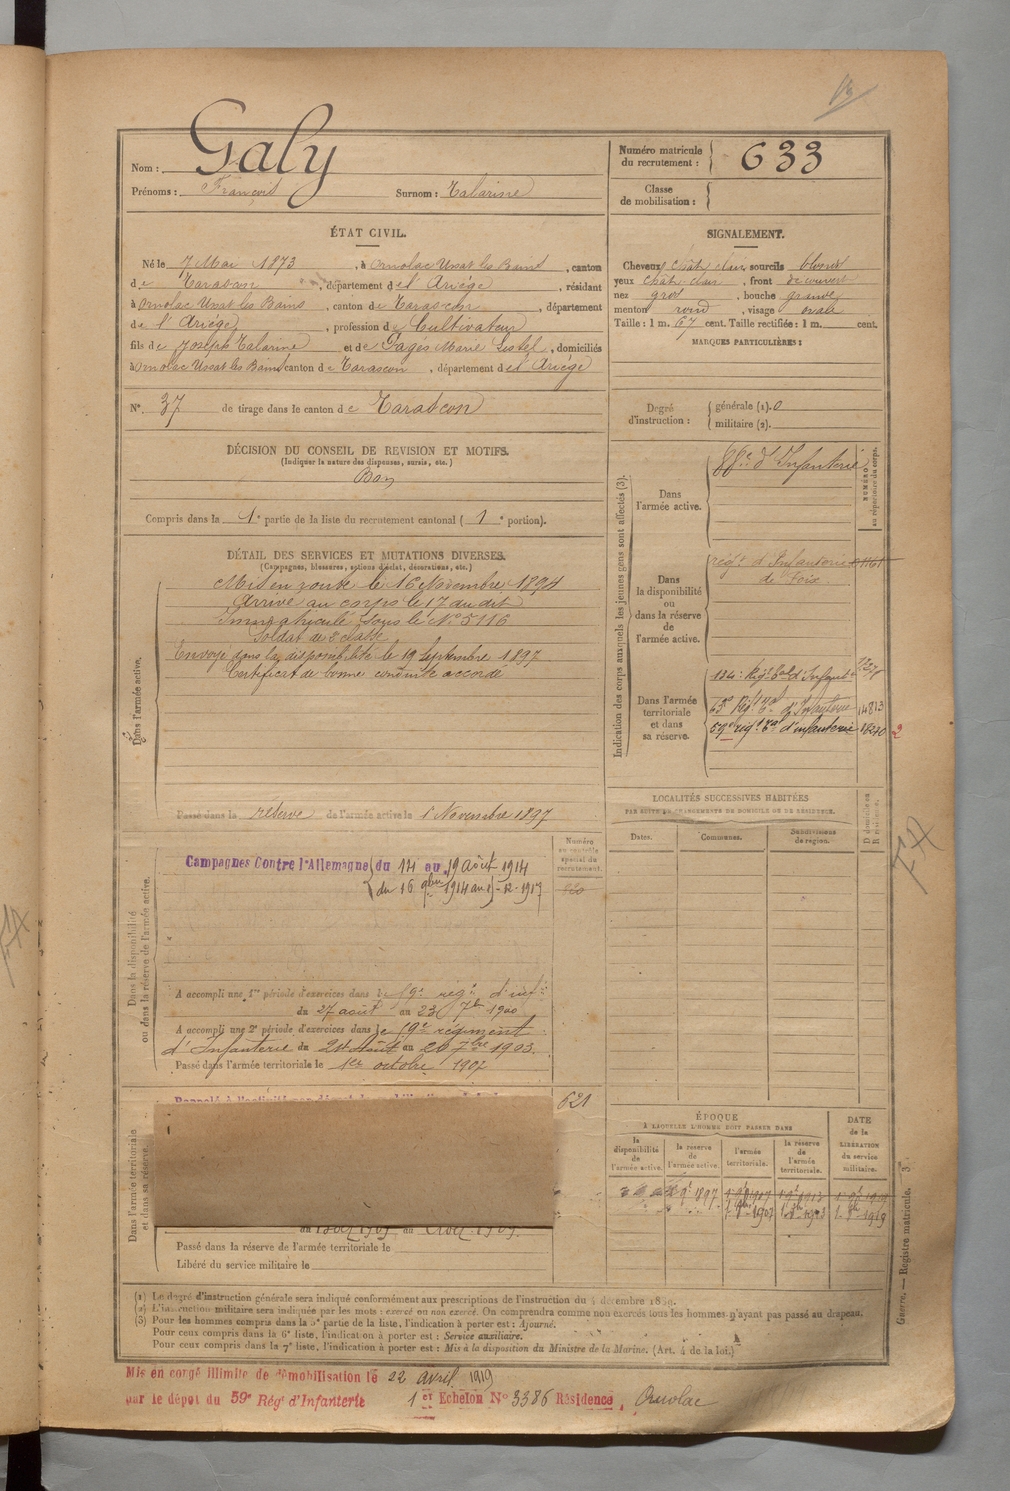 Galy
Nom :
Prénoms : François Surnom : Talarine
Numéro matricule du recrutement : 633
Classe de mobilisation :
ÉTAT CIVIL.
Né le 7 Mai 1873, à Ornolac Ussat les Bains, canton
de Tarascon, département de l'Ariège, résidant
à Ornolac Ussat les Bains, canton de Tarascon, département
de l'Ariège, profession de Cultivateur
fils de Joseph Talarine et de Pagés Marie, domiciliés
à Ornolac Ussat les Bains canton de Tarascon, département de l'Ariège
N° 37 de tirage dans le canton de Tarascon
SIGNALEMENT.
Cheveux chât. clair, sourcils blonds
yeux chât. clair, front découvert
nez gros, bouche grande
menton rond, visage ovale
Taille : 1 m. 67 cent. Taille rectifiée : 1 m. cent.
MARQUES PARTICULIÈRES :
Degré d'instruction : générale (1). 0
militaire (2).
DÉCISION DU CONSEIL DE REVISION ET MOTIFS.
(Indiquer la nature des dispenses, sursis, etc.)
Bon
Compris dans la 1e partie de la liste du recrutement cantonal (1e portion).
DÉTAIL DES SERVICES ET MUTATIONS DIVERSES.
(Campagnes, blessures, actions d'éclat, décorations, etc.)
Dans l'armée active.
Mis en route le 16 Novembre 1894
Arrivé au corps le 17 du dit
Immatriculé sous le N° 5116
Soldat de 2e classe
Envoyé dans la disponibilité le 19 Septembre 1897
Certificat de bonne conduite accordé
Passé dans la réserve de l'armée active le 1 Novembre 1897
Indication des corps auxquels les jeunes gens sont affectés (3).
NUMÉRO au répertoire du corps.
Dans l'armée active.
d'Infanterie
Dans la disponibilité ou dans la réserve de l'armée active.
régt d'Infanterie
de Foix
Dans l'armée territoriale et dans sa réserve.
134e Régt Tal d'Infant
65e Régt Tal d'Infanterie 14813
59e régt Tal d'infanterie 18270
2
LOCALITÉS SUCCESSIVES HABITÉES
PAR SUITE DE CHANGEMENTS DE DOMICILE OU DE RÉSIDENCE.
Dates. Communes. Subdivisions de region.
D domicile ou R résidence.
Dans la disponibilité ou dans la réserve de l'armée active.
Numéro au contrôle spécial du recrutement.
Campagnes Contre l'Allemagne du 14 au 19 août 1914
du 16 9bre 1914 au -12-1917
A accompli une 1re période d'exercices dans le 59e régt d'infie
du 27 août au 23 7bre 1900
A accompli une 2e période d'exercices dans le 59e régiment
d'Infanterie du 24 Août au 20 7bre 1903.
Passé dans l'armée territoriale le 1er octobre 1907
Dans l'armée territoriale et dans sa réserve.
621
Passé dans la réserve de l'armée territoriale le
Libéré du service militaire le
ÉPOQUE
À LAQUELLE L'HOMME DOIT PASSER DANS
la disponibilité de l'armée active. la réserve de l'armée active. l'armée territoriale. la réserve de l'armée territoriale.
DATE de la LIBÉRATION du service militaire.
(1) Le degré d'instruction générale sera indiqué conformément aux prescriptions de l'instruction du 4 décembre 1889.
(2) L'instruction militaire sera indiquée par les mots : exercé ou non exercé. On comprendra comme non exercés tous les hommes n'ayant pas passé au drapeau.
(3) Pour les hommes compris dans la 5e partie de la liste, l'indication à porter est : Ajourné.
Pour ceux compris dans la 6e liste, l'indication à porter est : Service auxiliaire.
Pour ceux compris dans la 7e liste, l'indication à porter est : Mis à la disposition du Ministre de la Marine. (Art. 4 de la loi.)
Guerre. — Registre matricule. 3
Mis en congé illimité de démobilisation le 22 avril 1919
par le dépôt du 59e Régt d'Infanterie 1er Echelon N° 3386 Résidence, Ornolac